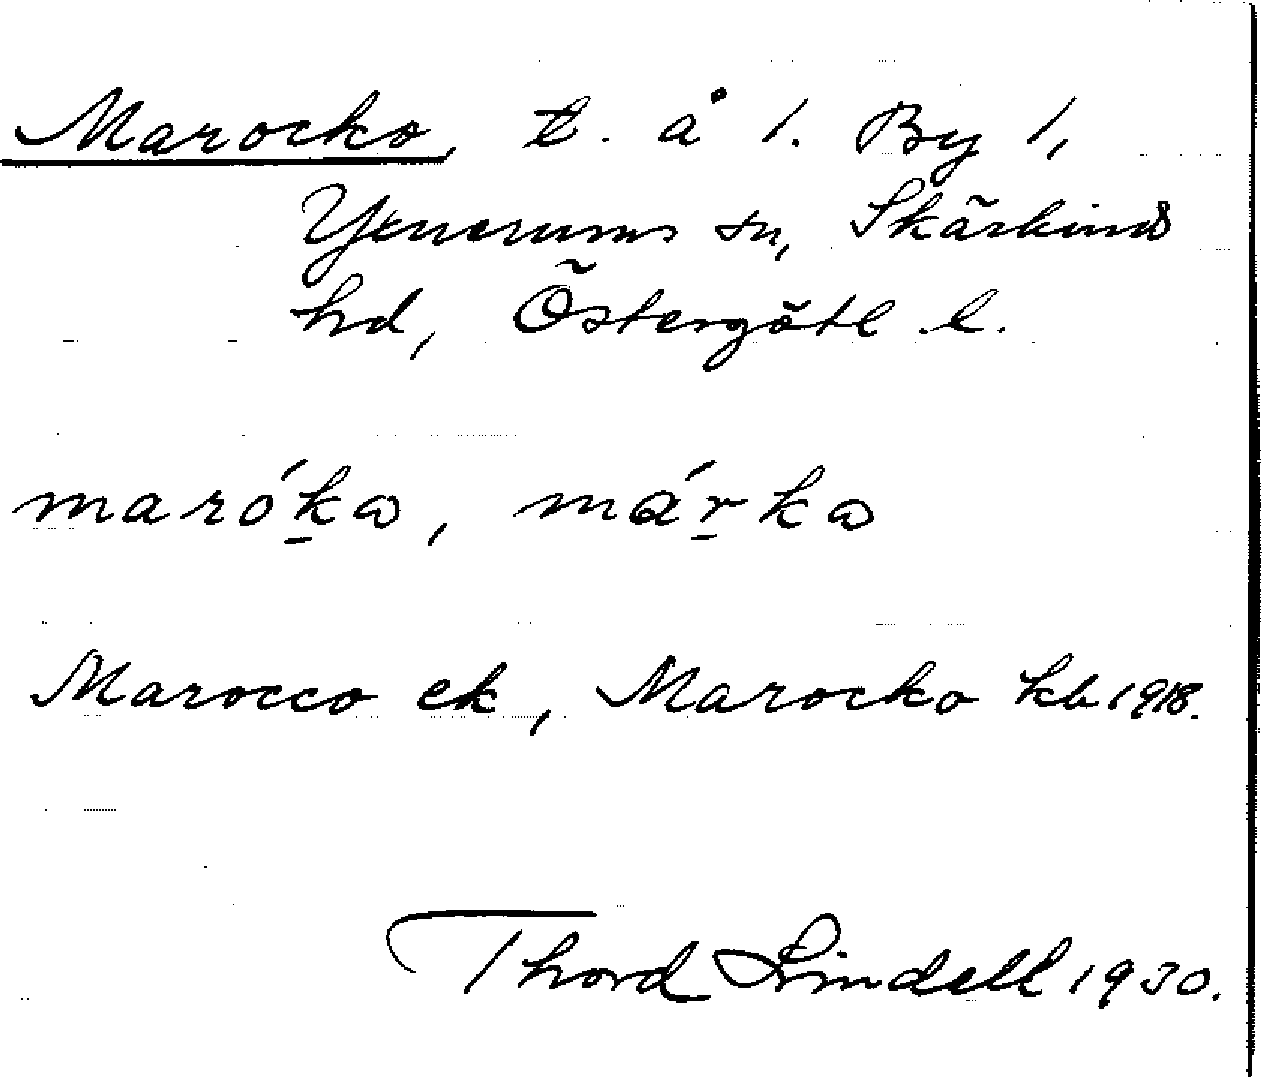 Marocko, t. å 1. By 1,
Yxnerums sn, Skärkinds
hd, Östergötl l.
maróka, márka
Marocco ek, Marocko kb 1918.
Thord Lindell 1930.